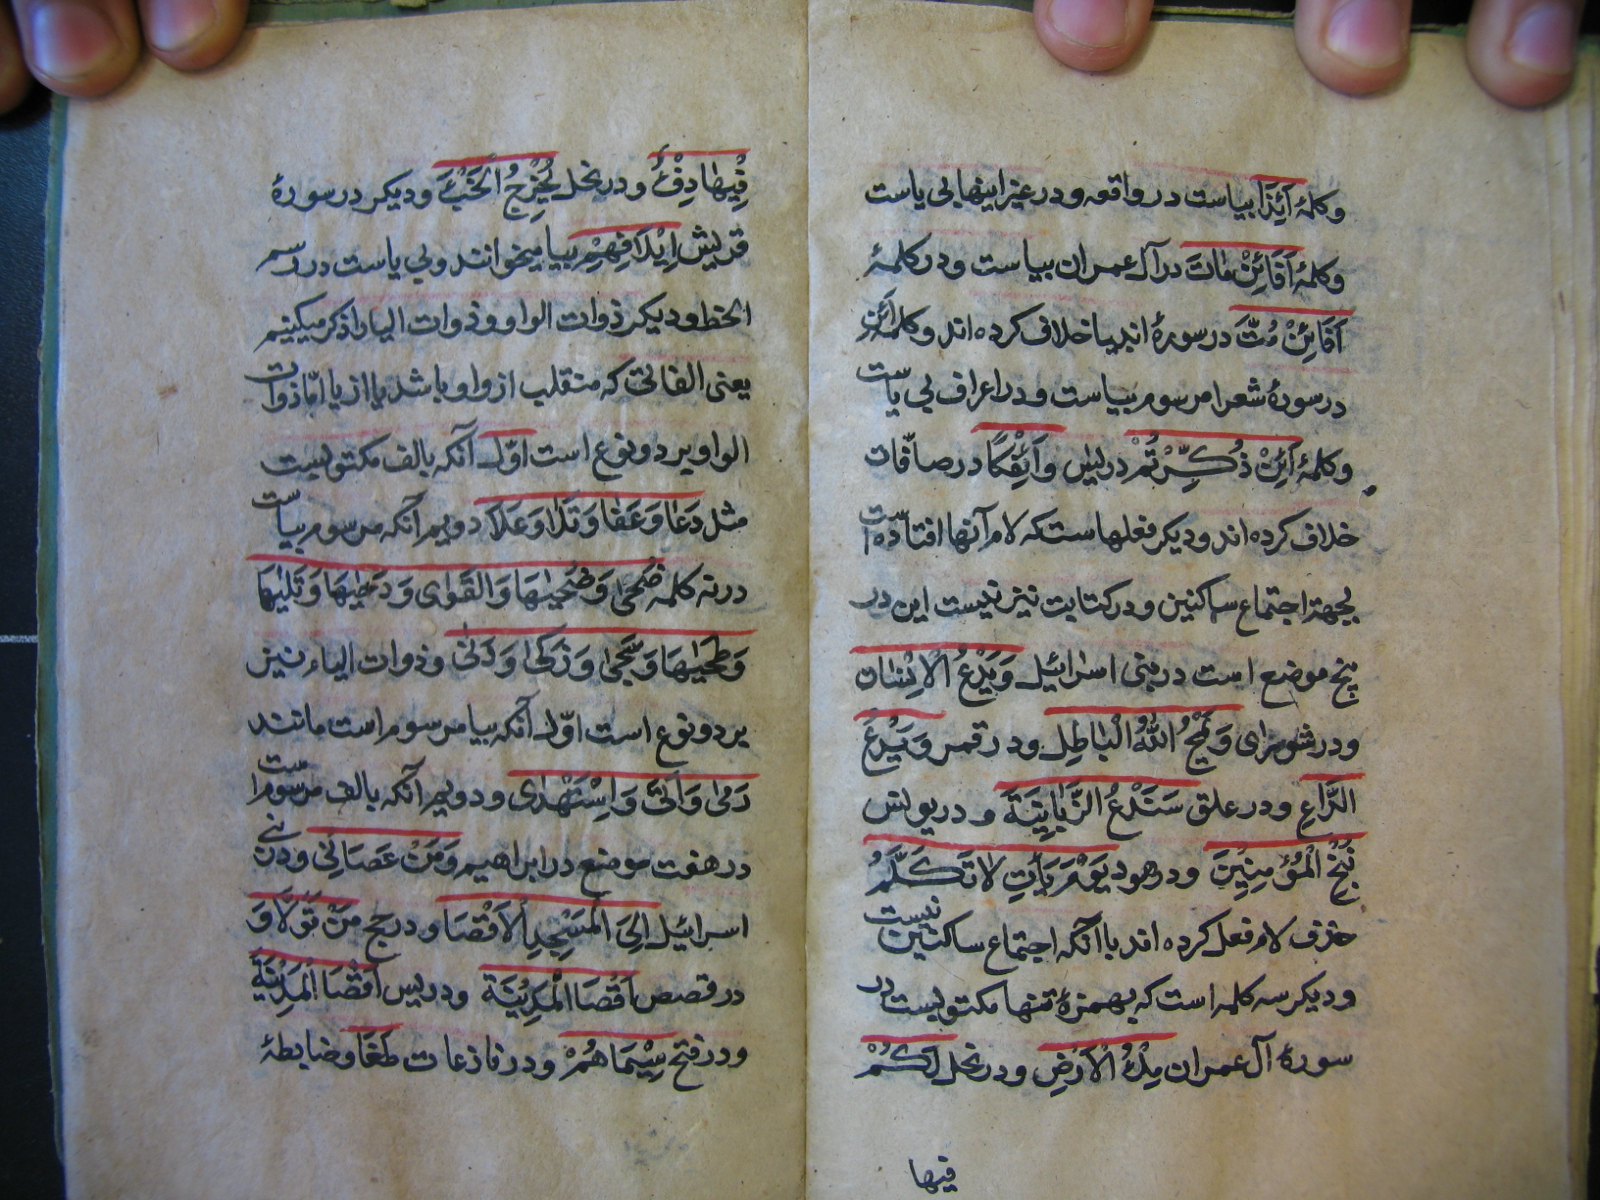 وکلمهٔ اَئِذَا بیاست در واقعه و در غیر اینها بی یاست
وکلمهٔ اَفَائِنْ مٰاتَ در آل عمران بیاست و در کلمهٔ
اَفَائِنْ مُتَّ در سورهٔ انبیا خلاف کرده اند و کلمهٔ أئن
در سورهٔ شعرا مرسوم بیاست و در اعراف بی یاست
وکلمهٔ اَئِنْ ذُکِّرْتُمْ در یس وَ اَئِفْکًا در صافّات
خلاف کرده اند و دیکر فعلهاست که لام آنها افتاده است
بجهة اجتماع ساکنین و در کتابت نیز نیست این در
پنج موضع است در بنی اسرائیل وَیَدْعُ الْاِنْسٰان
و در شورای وَیَمْحُ اللّٰهُ الْبٰاطِل و در قمر وَ یَدْعُ
الدَّاعِ و در علق سَنَدْعُ الزَّبٰانِیَةَ و در یونس
نُنْجِ الْمُؤْمِنِیْنَ و در هود یَوْمَ یَأْتِ لٰا تَکَلَّمُ
حذف لام فعل کرده اند با آنکه اجتماع ساکنین نیست
و دیکر سه کلمه است که بهمزهٔ تنها مکتوبست در
سورهٔ آل عمران مِلْءُ الْاَرْضِ و در نحل لَکُمْ
فیها
فِیْهٰا دِفْءٌ و در نحل یُخْرِجُ الْخَبْءَ و دیکر در سورهٔ
قریش اِیْلٰافِهِمْ بیا میخوانند و بی یاست در رسم
الخط و دیکر ذوات الواو و ذوات الیا را ذکر میکنیم
یعنی الفاتی که منقلب از واو باشد یا از یا امّا ذوات
الواو بر دو نوع است اوّل آنکه بالف مکتوبست
مثل دَعٰا وَ عَفٰا وَ تَلٰا وَ عَلٰا دویم آنکه مرسوم بیاست
در نه کلمه ضُحٰی وَ ضُحٰیهَا وَ الْقُوٰای وَ دَحٰیهَا وَ تَلٰیهَا
وَ طَحٰیهَا وَ سَجٰی وَ زَکٰی وَ دَنٰی و ذوات الیاء نیز
بر دو نوع است اوّل آنکه بیا مرسوم است مانند
رَمٰی وَ اَتٰی وَ اِسْتَهْدٰی و دویم آنکه بالف مرسوم است
در هفت موضع در ابراهیم وَ مَنْ عَصَانِی و در بنی
اسرائیل اِلَی الْمَسْجِدِ الْاَقْصَا و در حج مَنْ تَوَلَّاهُ وَ
در قصص اَقْصَا الْمَدِیْنَةِ و در یس اَقْصَا الْمَدِیْنَةِ
و در فتح سِیْمَاهُمْ و در نازعات طَغَا و ضابطهٔ